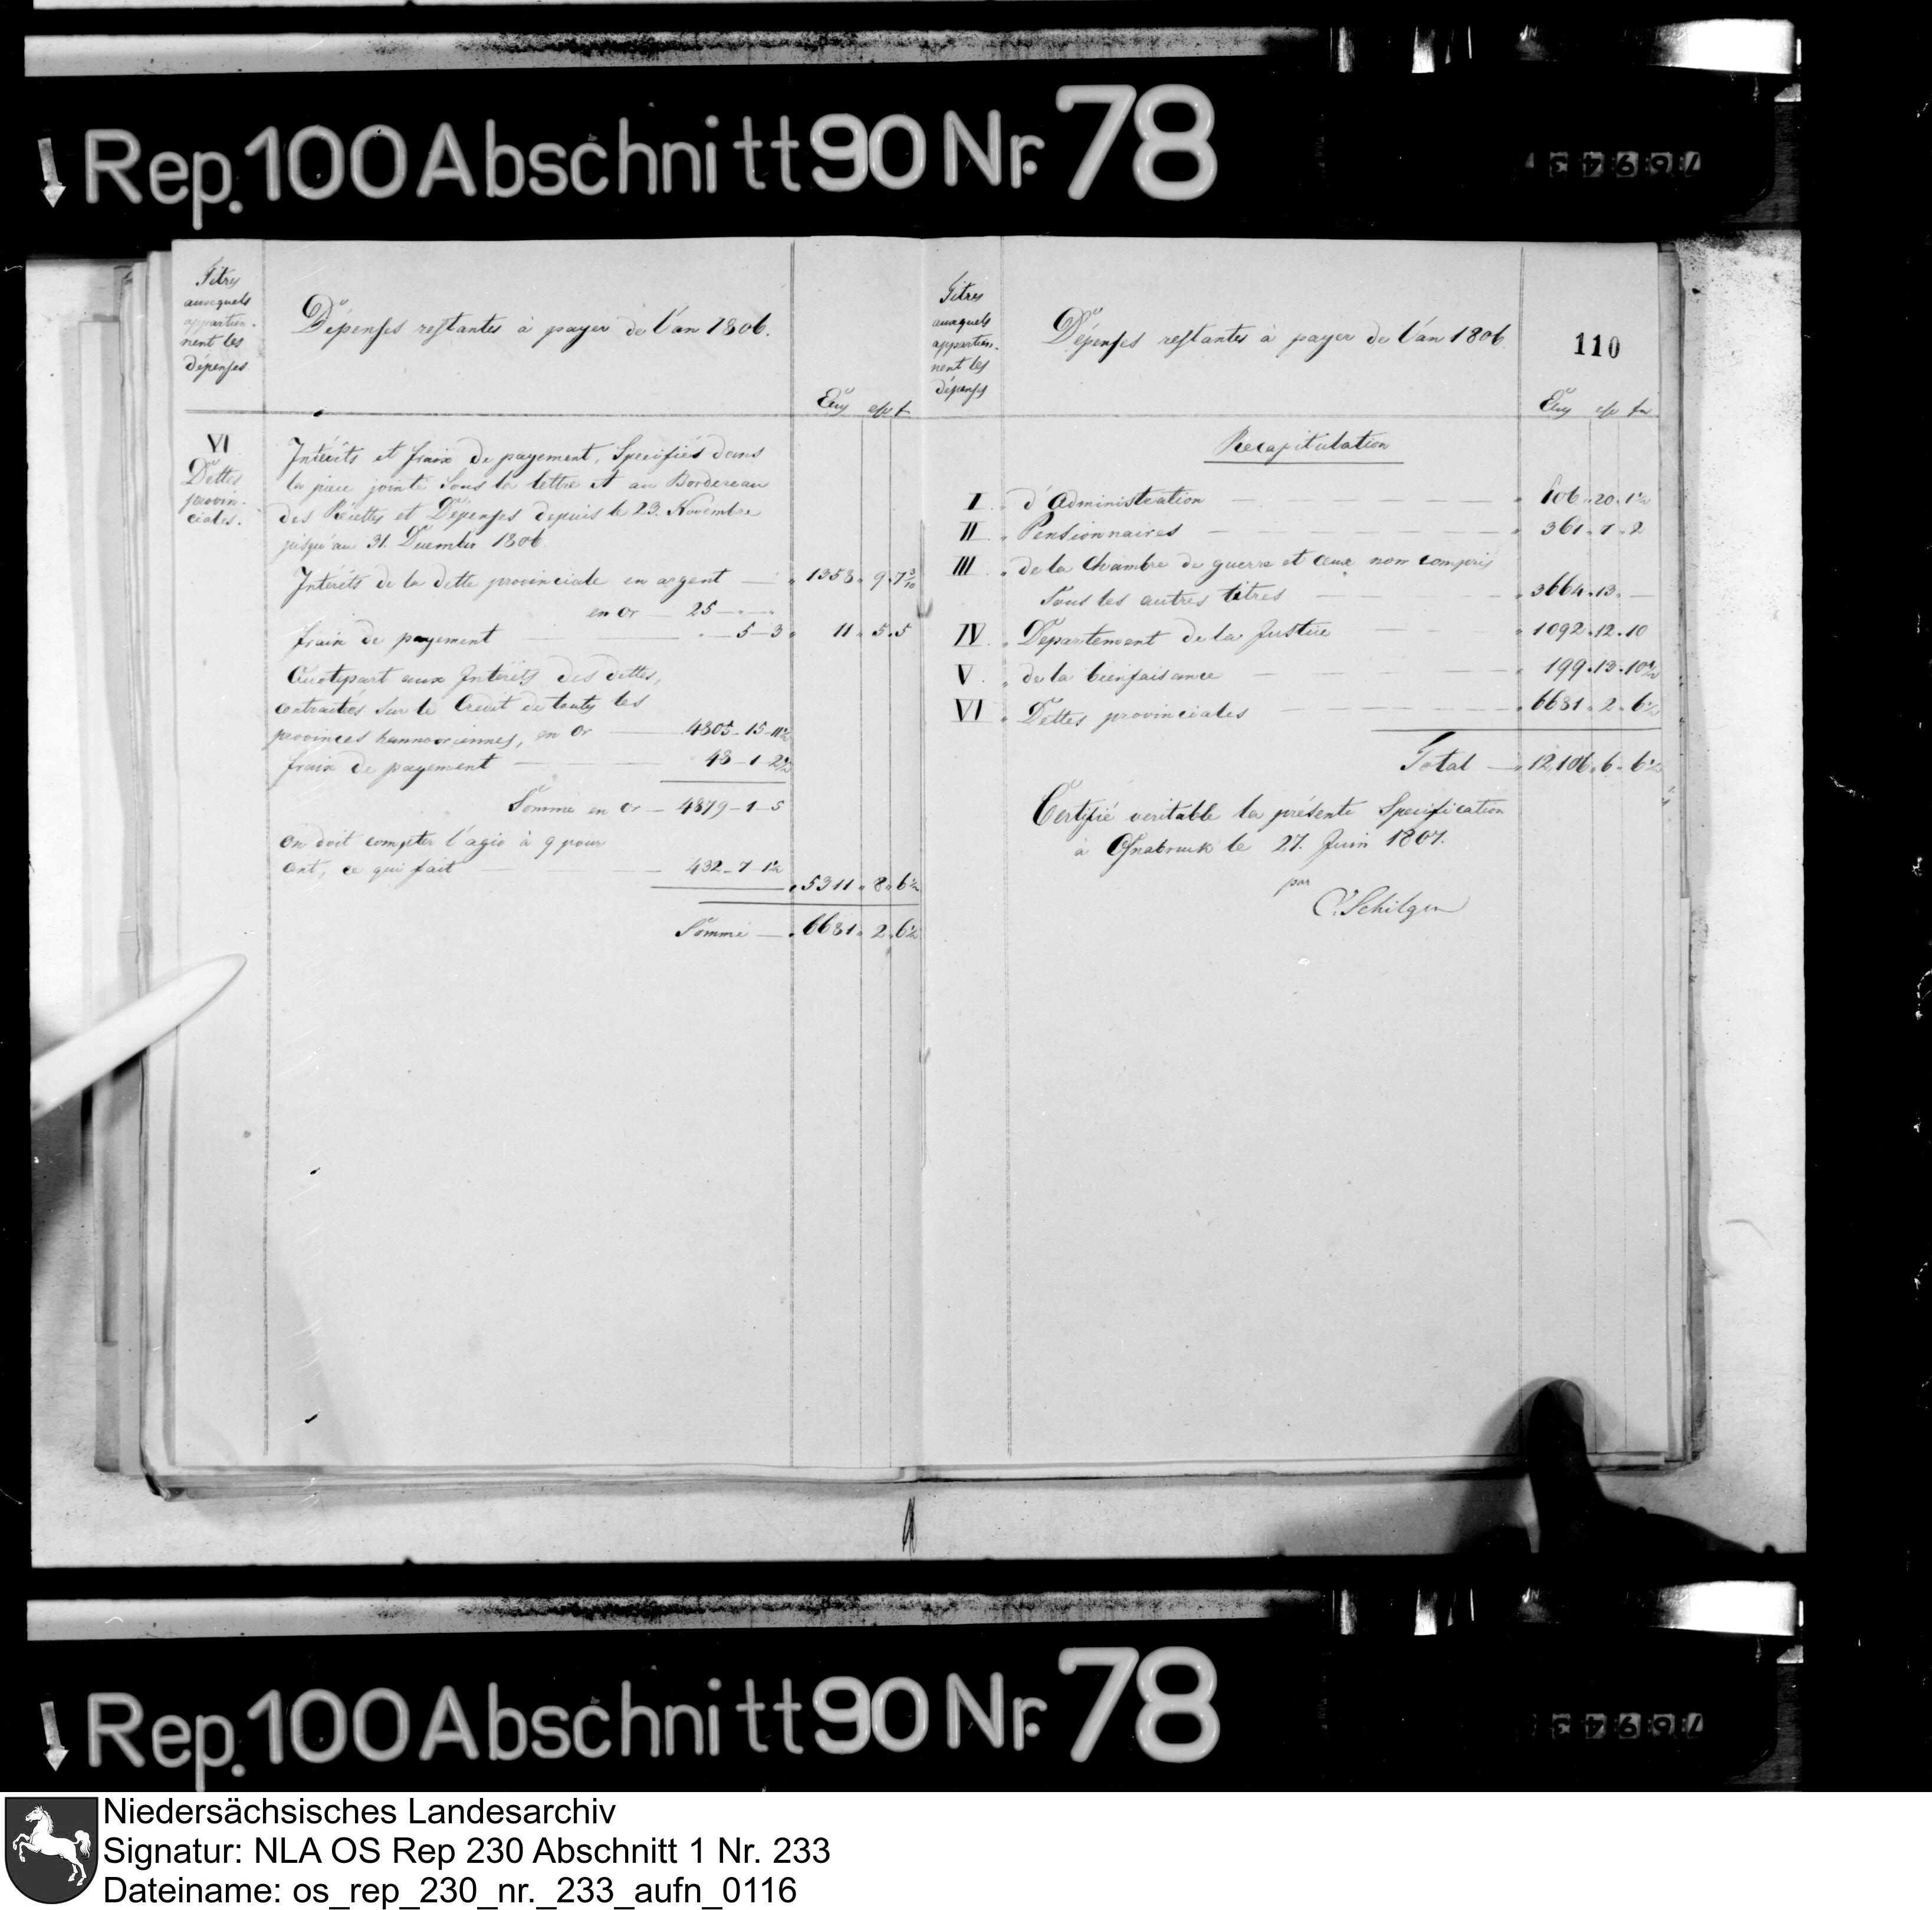 Rep. 100 Abschnitt 90 Nr. 78
Titres
auxquels
appartien-
nent les
dépenses.
Dépenses restantes à payer de l'an 1806.
VI
Dettes
provin-
ciales.
Intérêts et fraix de payement, Specifiés dans
la piece jointe Sous la lettre A au Bordereau
des Récettes et Dépenses depuis le 23. Novembre
jusqu'au 31. Decembre 1806.
Intérêts de la dette provinciale en argent — 1358 " 9 " 7 3/10
en or — 25 — " — "
fraix de payement — 5 — 3 " 11 " 5 " 5
Quotepart aux Intérêts des dettes,
contractées Sur le Credit de toutes les
provinces hannovriennes, en or — 4805 — 15 — 11 1/2
fraix de payement — 48 — 1 — 2 1/2
Somme en or — 4879 — 1 — 5
on doit compter l'agio à 9 pour
cent, ce qui fait — 432 — 7 — 1 1/2
" 5311 " 8 " 6 1/2
Somme — " 6681 " 2 " 6 1/2
Titres
auxquels
appartien-
nent les
dépenses
Dépenses restantes à payer de l'an 1806
110
Recapitulation
I. " d'Administration — " 106 " 20 " 1 1/2
II. " Pensionnaires — " 361 " 7 " 2
III. " de la Chambre de guerre et ceux non compris
Sous les autres titres — " 3664 " 13 " —
IV. " Departement de la Justice — " 1092 " 12 " 10
V. " de la bienfaisance — " 199 " 13 " 10 1/2
VI. " Dettes provinciales — " 6681 " 2 " 6 1/2
Total — " 12,106 " 6 " 6 1/2
Certifié veritable la présente Specification
à Osnabruck le 27. Juin 1807.
par
C. Schilgen
Rep. 100 Abschnitt 90 Nr. 78
Niedersächsisches Landesarchiv
Signatur: NLA OS Rep 230 Abschnitt 1 Nr. 233
Dateiname: os_rep_230_nr._233_aufn_0116